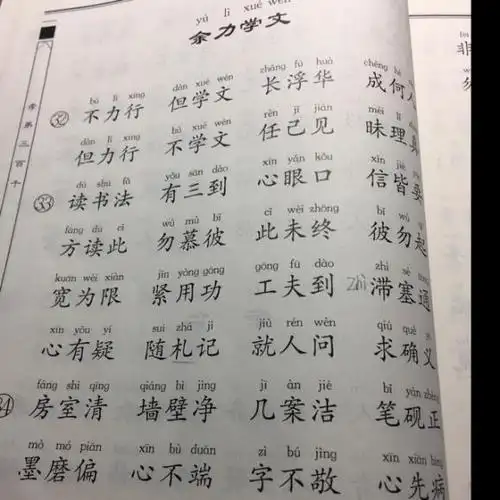 yú lì xué wén
余力学文
bú lì xíng dàn xué wén zhǎng fú huá chéng hé
㉜ 不力行 但学文 长浮华 成何人
dàn lì xíng bù xué wén rèn jǐ jiàn mèi lǐ
但力行 不学文 任己见 昧理真
dú shū fǎ yǒu sān dào xīn yǎn kǒu xìn jiē
㉝ 读书法 有三到 心眼口 信皆要
fāng dú cǐ wù mù bǐ cǐ wèi zhōng bǐ wù qǐ
方读此 勿慕彼 此未终 彼勿起
kuān wéi xiàn jǐn yòng gōng gōng fū dào zhì sè tōng
宽为限 紧用功 工夫到 zhì 滞塞通
xīn yǒu yí suí zhá jì jiù rén wèn qiú què yì
心有疑 随札记 就人问 求确义
fáng shì qīng qiáng bì jìng jī àn jié bǐ yàn zhèng
34 房室清 墙壁净 几案洁 笔砚正
mò mó piān xīn bù duān zì bú jìng xīn xiān bìng
墨磨偏 心不端 字不敬 心先病
弟子三百千
非
勿